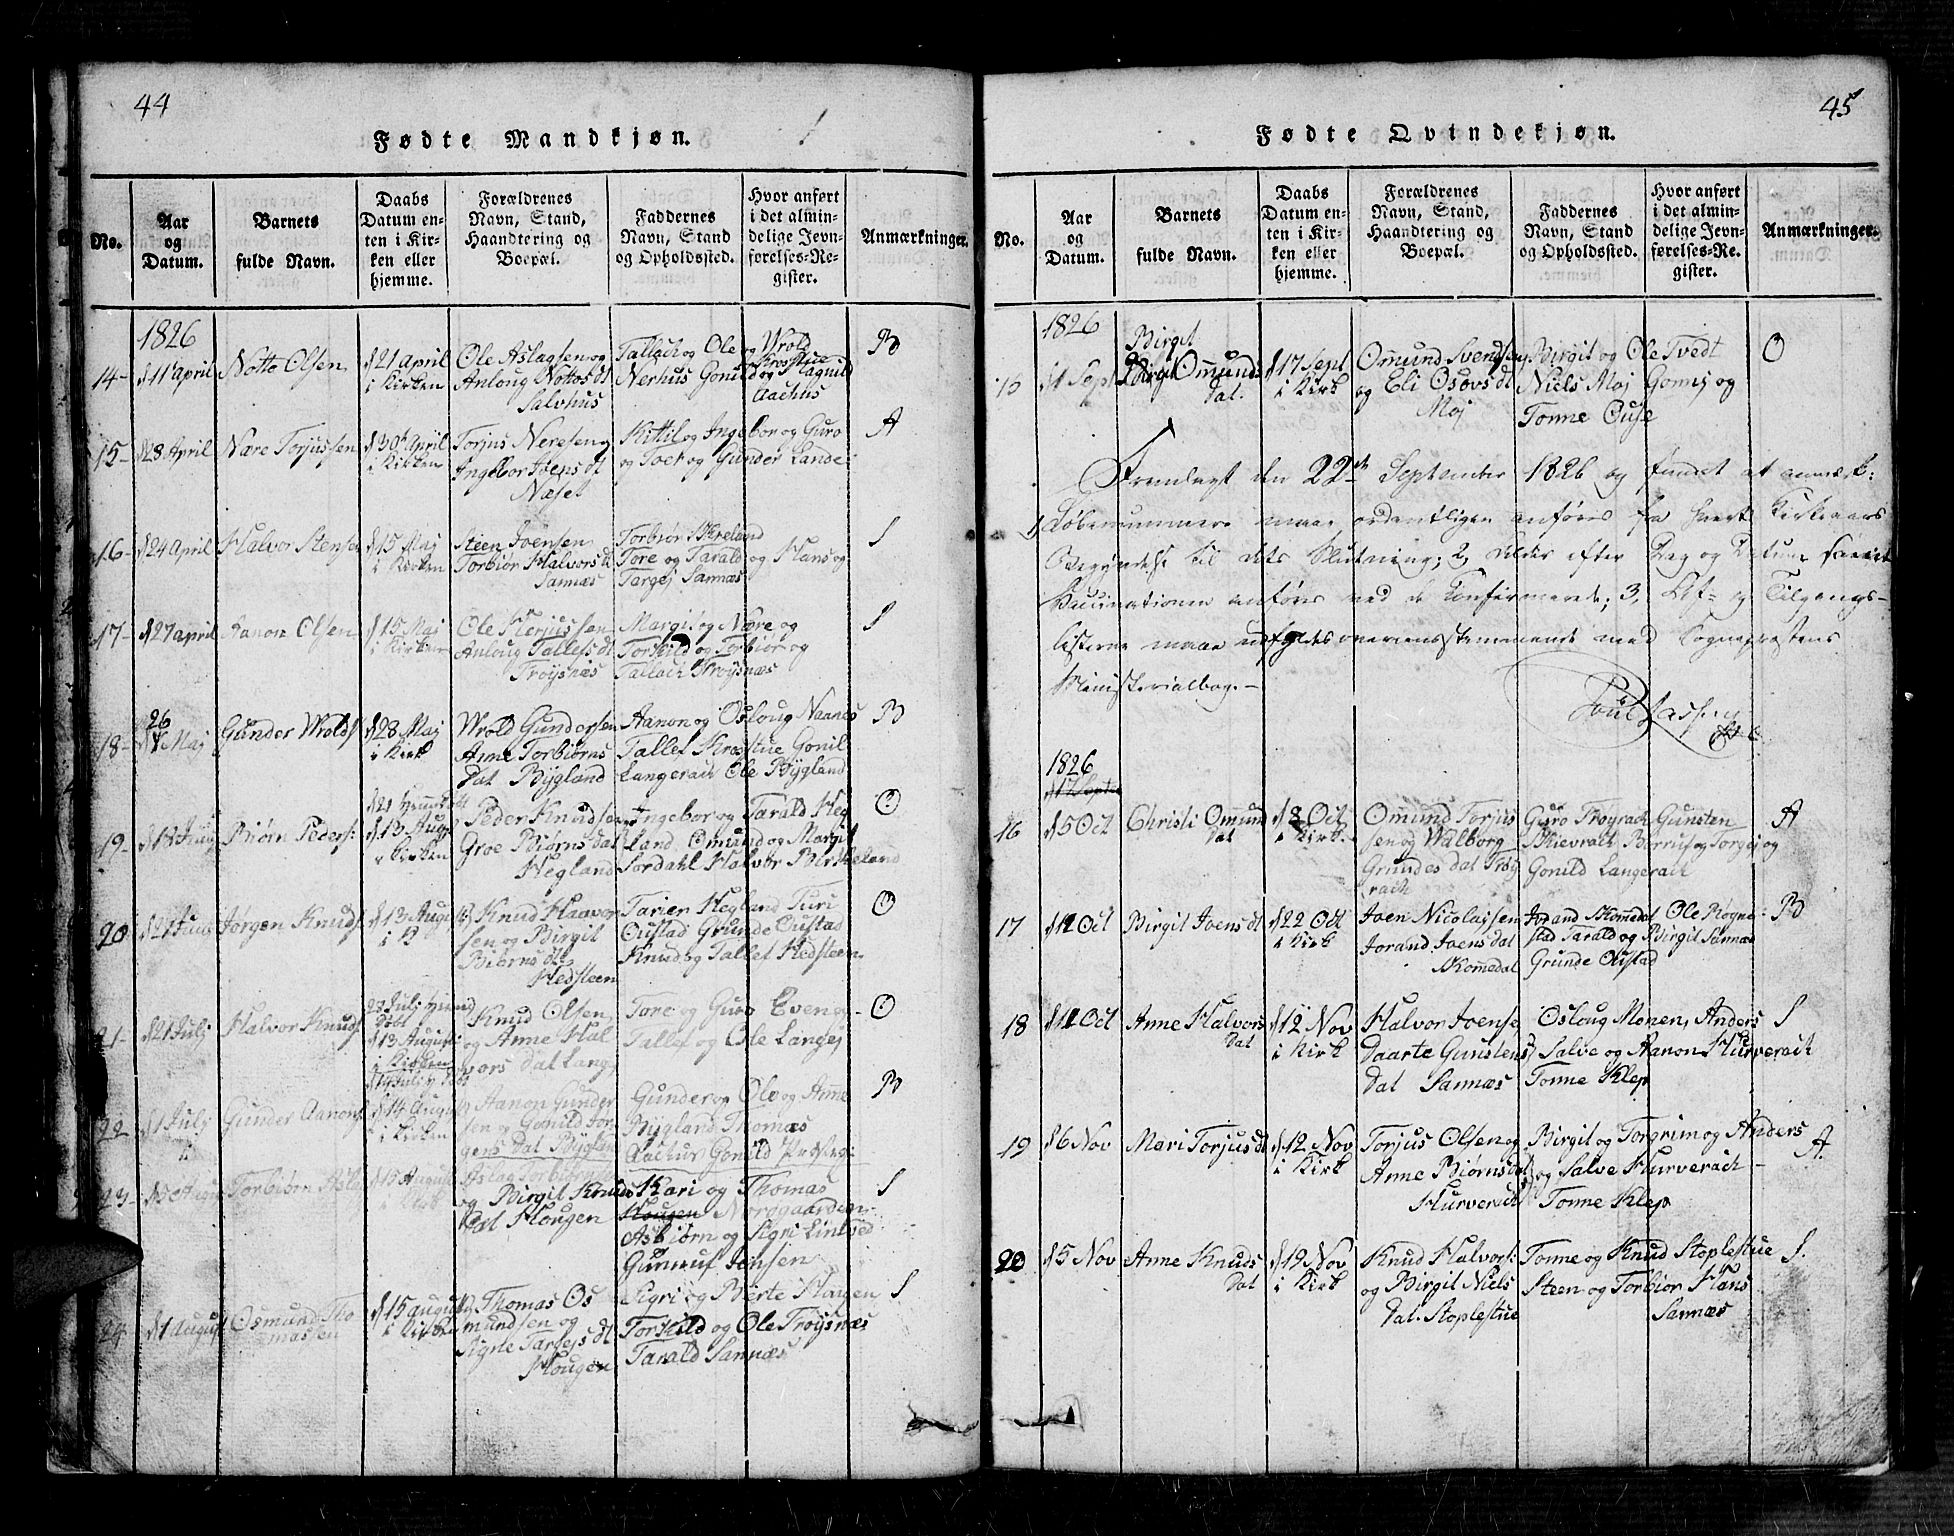 44
Fødte Mandkjøn.
No.
Aar
og
Datum.
Barnets
fulde Navn.
Daabs
Datum en-
ten i Kir-
ken eller
hjemme.
Forældrenes
Navn, Stand,
Haandtering og
Boepæl.
Faddernes
Navn, Stand
og Opholdssted.
Hvor anført
i det almin-
delige Jevn-
førelses-Re-
gister.
Anmærkninger.
1826
14 d 11 April Notto Olsen d 21 April
i Kirken
Ole Aslagsen og
Anloug Nottos dt
Salvhus
Tallach og Ole og Wrold
Nerhus Gonild og Ragnild
Aachus
B
15 d 23 April Nære Torjussen d 30 April
i Kirken
Torjus Neresen og
Ingebor Joens dt
Næset
Kittil og Ingebor og Guro
og Joer og Gunder Lande
A
16 d 24 April Halvor Stensen d 15 Maj
i Kirken
Steen Joensen
Torbiør Halvors d
Sannæs
Torbiør Skreland
Tore og Tarald og Hans og
Targej Sannæs
S
17 d 27 april Aanon Olsen d 15 Maj
i Kirken
Ole Terjussen
Anloug Tallefs dt
Frøysnæs
Margit og Nære og
Torkild og Torbiør og
Tallach Frøysnæs
S
18 26 Maj Gunder Wrolds d 28 Maj
i Kirk
Wrold Gundersen
Anne Torbiørns
Dat Bygland
Aanon og Osloug Naanes
Tallef Krostue Gonil
Langerach Ole Bygland
B
19 Biørn Peders:
d 13 Aug
i Kirken
Peder Knudsen
Groe Biørns dat
Hegland
Ingebor og Tarald Heg
land, Omund og Margit
Sordahl Halvor Birkeland
O
20 Jørgen Knuds d 13 Aug
i K
Knud Haavor
sen og Birgit
Biørns dt
Hedsteen
Tarier Hegland Turi
Oustad Grunde Oustad
Knud og Tallef Hedsteen
O
21 d 21 Julj Halvor Knuds
Døbt
d 13 August
i Kirken
Knud Olsen
og Anne Hal
vors dat Lang
Tore og Guro Even og
Tallef og Ole Langej
O
22 d 1 Julj Gunder Aanons
d 14 August
i Kirken
Aanon Gunder
sen og Gonild Jor
gens Dat Bygland
Gunder og Ole og Anne
Bygland Thomas
Aachus Gonild
B
23 Torbiørn Aslag d 15 August
i Kirk
Aslag Torbiørnsen
og Birgit Knuds
Dat Hougen
Kari og Thomas
Hougen Norgaarden
Asbiørn og Sigri Lintved
Gunnuf Jensen
S
24 d 1 August Osmund Tho
massen
d 15 august
i Kirken
Thomas Os
mundsen og
Signe Targejs dt
Hougen
Sigri og Berte Hougen
Torkild og Ole Frøysnæs
Tarald Sannæs
S
45
Fødte Qvindekjøn.
No.
Aar
og
Datum.
Barnets
fulde Navn.
Daabs
Datum en-
ten i Kir-
ken eller
hjemme.
Forældrenes
Navn, Stand,
Haandtering og
Boepæl.
Faddernes
Navn, Stand
og Opholdssted.
Hvor anført
i det almin-
delige Jevn-
førelses-Re-
gister.
Anmærkninger.
1826
15 d 1 Sept Birgit
Birgit Omunds
Dat.
d 17 Sept
i Kirk
Omund Svendsen
og Eli Osovs dt
Moj
Birgit og Ole Tvedt
Niels Moj Gomej og
Tonne Ouse
O
Fremlagt den 22de September 1826 og fundet at anmærk:
1, Løbenummere maae ordentligen anføres fra hvert Kirkeaars
Begyndelse til dets Slutning; 2, Alder efter Dag og Datum samt
Vaccinationen anføres ved de Confirmerede; 3, Af- og Tilgangs-
listerne maae udfyldes overensstemmende med Sognepræstens
Ministerialbog.-
1826
16 d 5 Oct Christi Omund
Dat
d 8 Oct
i Kirk
Omund Torjus
sen og Walborg
Grundes dat Frøy
rach
Guro Frøyrach Gunsten
Skievrach Berruf og Torgej og
Gonild Langerach
A
17 d 12 Oct Birgit Joens dt d 22 Oct
i Kirk
Joen Nicolaysen
Jorand Joens dat
Skomedal
Jorand Skomedal Ole Røgne
stad Tarald og Birgit Sannæs
Grunde Oustad
B
18 d 12 Oct Anne Halvors
Dat
d 12 Nov
i Kirk
Halvor Joense
Daarte Gunstens
dat Sannæs
Osloug Monen, Anders
Salve og Aanon Hurverach
Tonne Klep
S
19 d 6 Nov Mari Torjus dt d 12 Nov
i Kirk
Torjus Olsen og
Anne Biørns dat
Hurverach
Birgit og Torgrim og Anders
og Salve Hurverach
Tonne Klep
A
20 d 5 Nov Anne Knuds
Dat
d 19 Nov
i Kirk
Knud Halvors:
og Birgit Niels
Dat. Stoplestue
Tonne og Knud Stoplestue
Steen og Torbiør Hans
Sannæs
S.